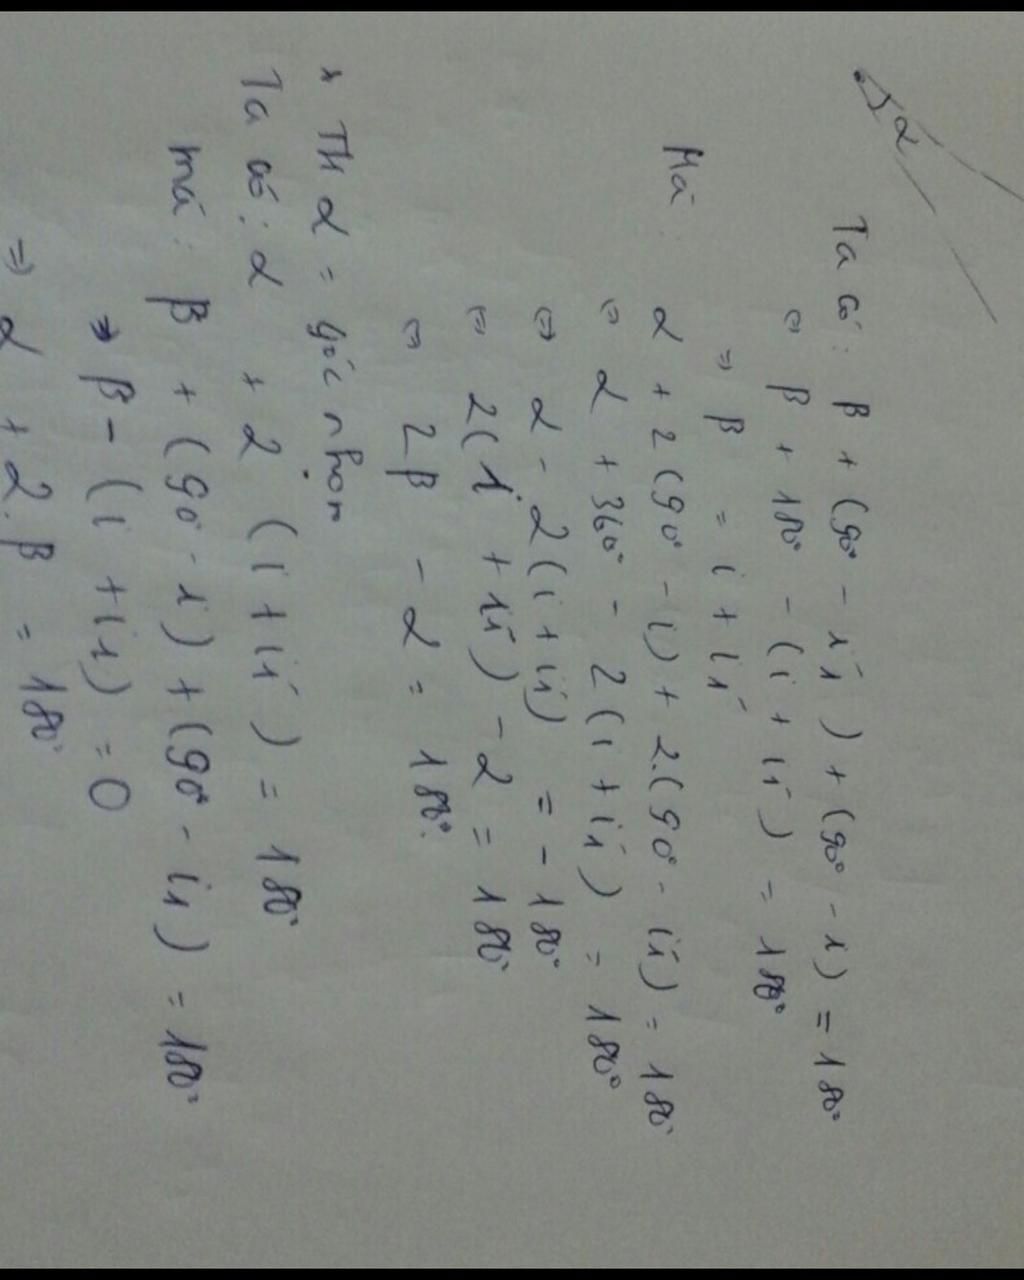 α
Ta có: β + (90° - i1) + (90° - i) = 180°
⇔ β + 180° - (i + i1) = 180°
⇒ β = i + i1
Mà
α + 2(90° - i) + 2.(90° - i1) = 180°
⇔ α + 360° - 2(i + i1) = 180°
⇔ α - 2(i + i1) = - 180°
⇔ 2(i + i1) - α = 180°
⇔ 2β - α = 180°.
* TH α = góc nhọn
Ta có: α + 2 (i + i1) = 180°
mà: β + (90° - i) + (90° - i1) = 180°
⇒ β - (i + i1) = 0
⇒ α + 2.β = 180°